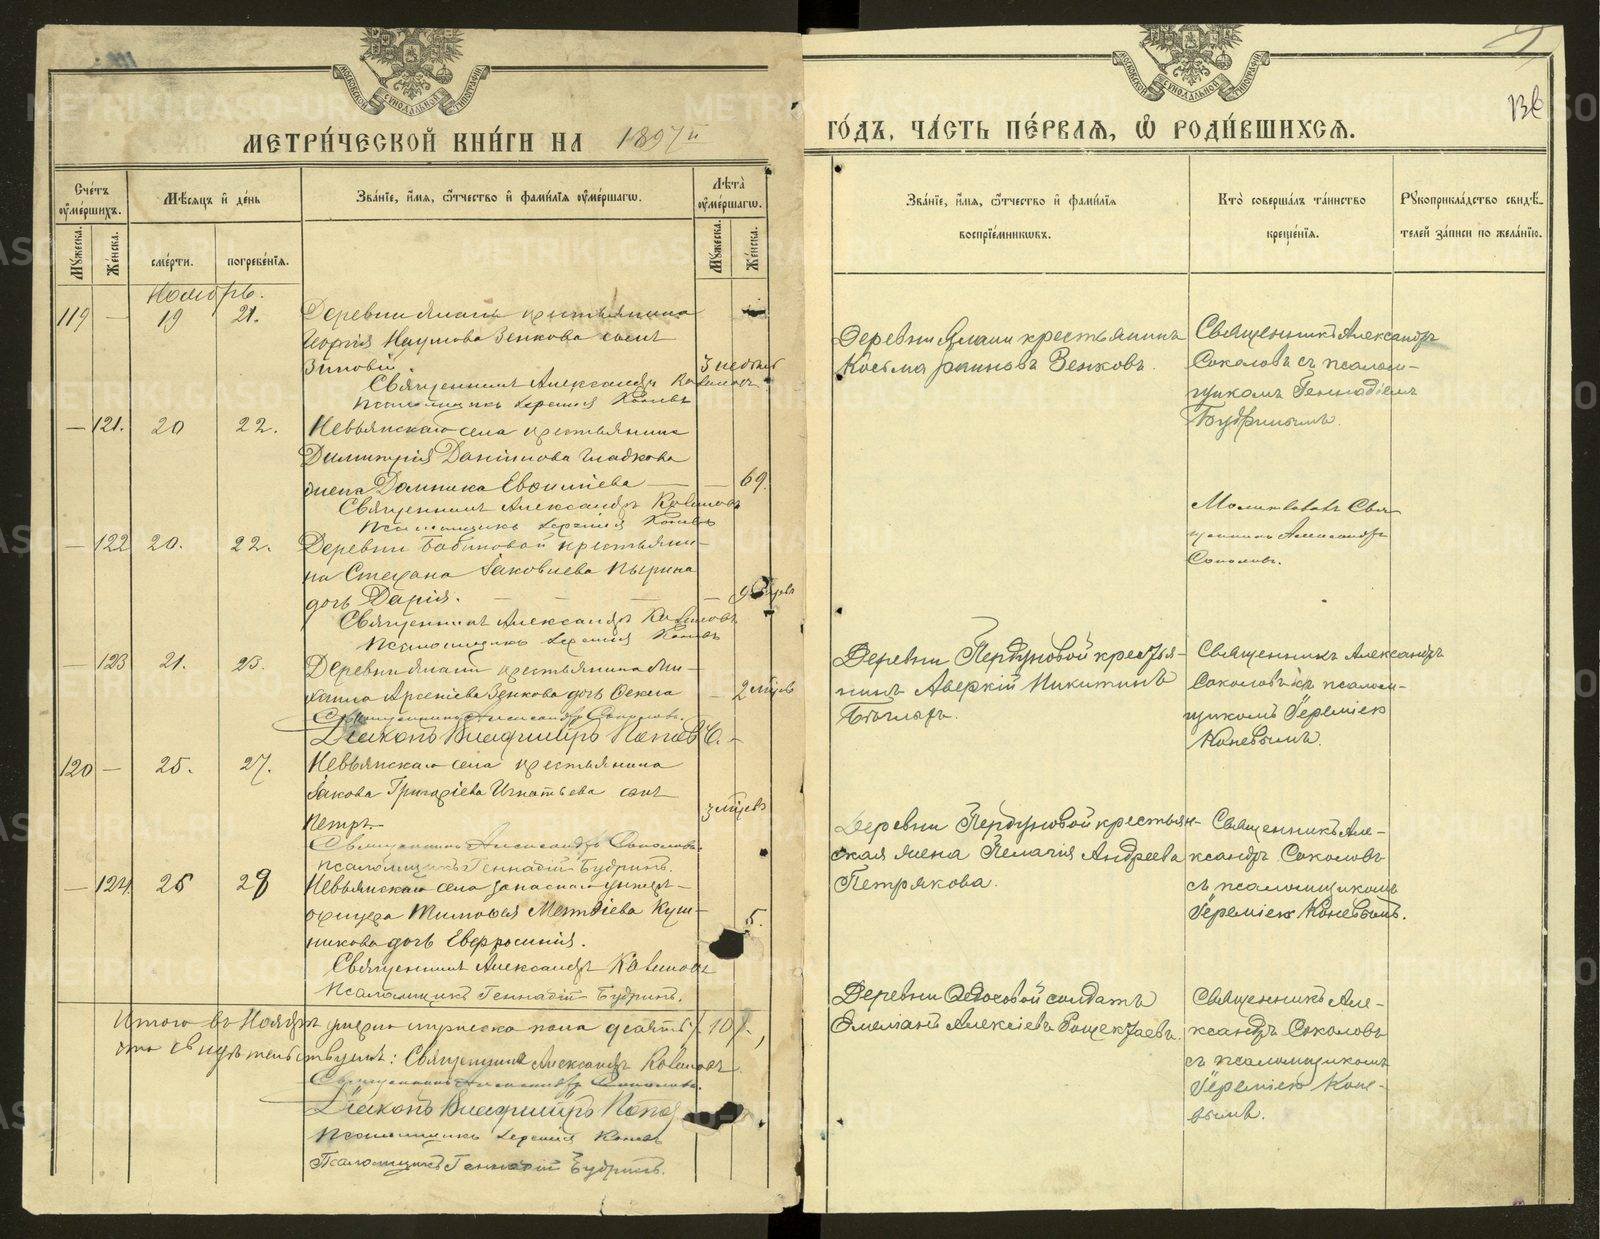 МЕТРИ́ЧЕСКОЙ КНИ́ГИ НА 1897 й
Сче́тъ ᲂу҆ме́ршихъ.
Мѣ́сяцъ и҆ де́нь
Зва́нїе, и҆́мя, ѻ҆́тчество и҆ фами́лїя ᲂу҆ме́ршагѡ.
Лѣта̀ ᲂу҆ме́ршагѡ.
Му́жеска.
Же́нска.
сме́рти.
погребе́нїя.
Му́жеска.
Же́нска.
Ноябрь.
119 — 19 21. Деревни Ялани крестьянина
Георгія Наумова Зенкова сынъ
Зиновій 3 недѣль
Священникъ Александръ
Псаломщикъ Іеремія Коневъ
— 121. 20 22. Невьянскаго села крестьянина
Димитрія Даніилова Гладкова
жена Домника — — 69.
Священникъ Александръ
Псаломщикъ Іеремія Коневъ
— 122 20. 22. Деревни Бабиновой крестьяни-
на Стефана Іаковлева Пырина
дочь Дарія. — — — —
Священникъ Александръ
Псаломщикъ Іеремія Коневъ
— 123 21. 23. Деревни Ялани крестьянина Ми-
хаила Арсеніева Зенкова дочь Текла — 2 мѣсяц
Священникъ Александръ Соколовъ.
Діаконъ Владимиръ Поповъ.
120 — 25. 27. Невьянскаго села крестьянина
Іакова Григоріева Игнатьева сынъ
Петръ. 3 мѣсяц
Священникъ Александръ Соколовъ.
Псаломщикъ Геннадій Будринъ.
— 124 26 28 Невьянскаго села запаснаго унтеръ-
офицера Тимофея Матвіева Куш-
никова дочь Евфросинія. 5.
Священникъ Александръ
Псаломщикъ Геннадій Будринъ.
Итого въ Ноябрѣ умерло мужеска пола десять /10/,
что свидѣтельствуемъ: Священникъ Александръ
Священникъ Александръ Соколовъ.
Діаконъ Владимиръ Поповъ
Псаломщикъ Іеремія Коневъ
Псаломщикъ Геннадій Будринъ.
136
ГО́ДЪ, ЧА́СТЬ ПЕ́РВАЯ, Ѡ҆ РОДИ́ВШИХСЯ.
Зва́нїе, и҆́мя, ѻ҆́тчество и҆ фами́лїя
воспрїе́мникѡвъ.
Кто̀ соверша́лъ та́инство
креще́нїя.
Рꙋкоприкла́дство свидѣ́-
телей за́писи по жела́нїю.
Деревни Ялани крестьянинъ
Косьма Зенковъ.
Священникъ Александръ
Соколовъ съ псалом-
щикомъ Геннадіемъ
Будринымъ.
Молитвовалъ Свя-
щенникъ Александръ
Соколовъ.
Деревни Пердуновой крестья-
нинъ Аверкій Никитинъ
Священникъ Александръ
Соколовъ съ псалом-
щикомъ Іереміею
Коневымъ.
Деревни Пердуновой крестьян-
ская жена Пелагія Андреева
Петрякова.
Священникъ Але-
ксандръ Соколовъ
съ псаломщикомъ
Іереміею Коневымъ.
Деревни Ѳедосовой солдатъ
Емеліанъ Алексіевъ
Священникъ Але-
ксандръ Соколовъ
съ псаломщикомъ
Іереміею Коне-
вымъ.